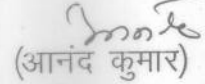 (आनंद कुमार)